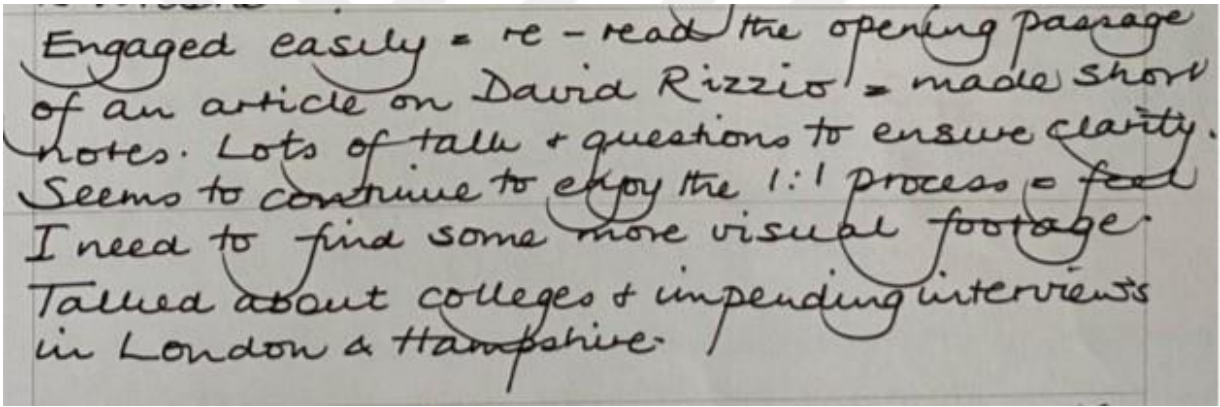 Engaged easily = re-read the opening passage
of an article on David Rizzio = made short
notes. Lots of talk + questions to ensure clarity.
Seems to continue to enjoy the 1:1 process = feel
I need to find some more visual footage.
Talked about colleges + impending interviews
in London & Hampshire.